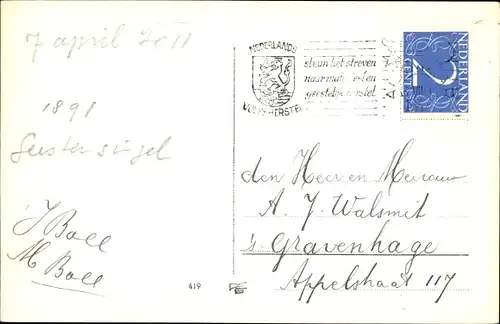 7 april 2011
1891
Geestersingel
J Ball
M Ball
419
NEDERLANDS
VOLKSHERSTEL
steun het streven
naar
geestelijk herstel
NEDERLAND
2
CENT
den Heer en Mevrouw
A. J. Walsmit
's Gravenhage
Appelstraat 117